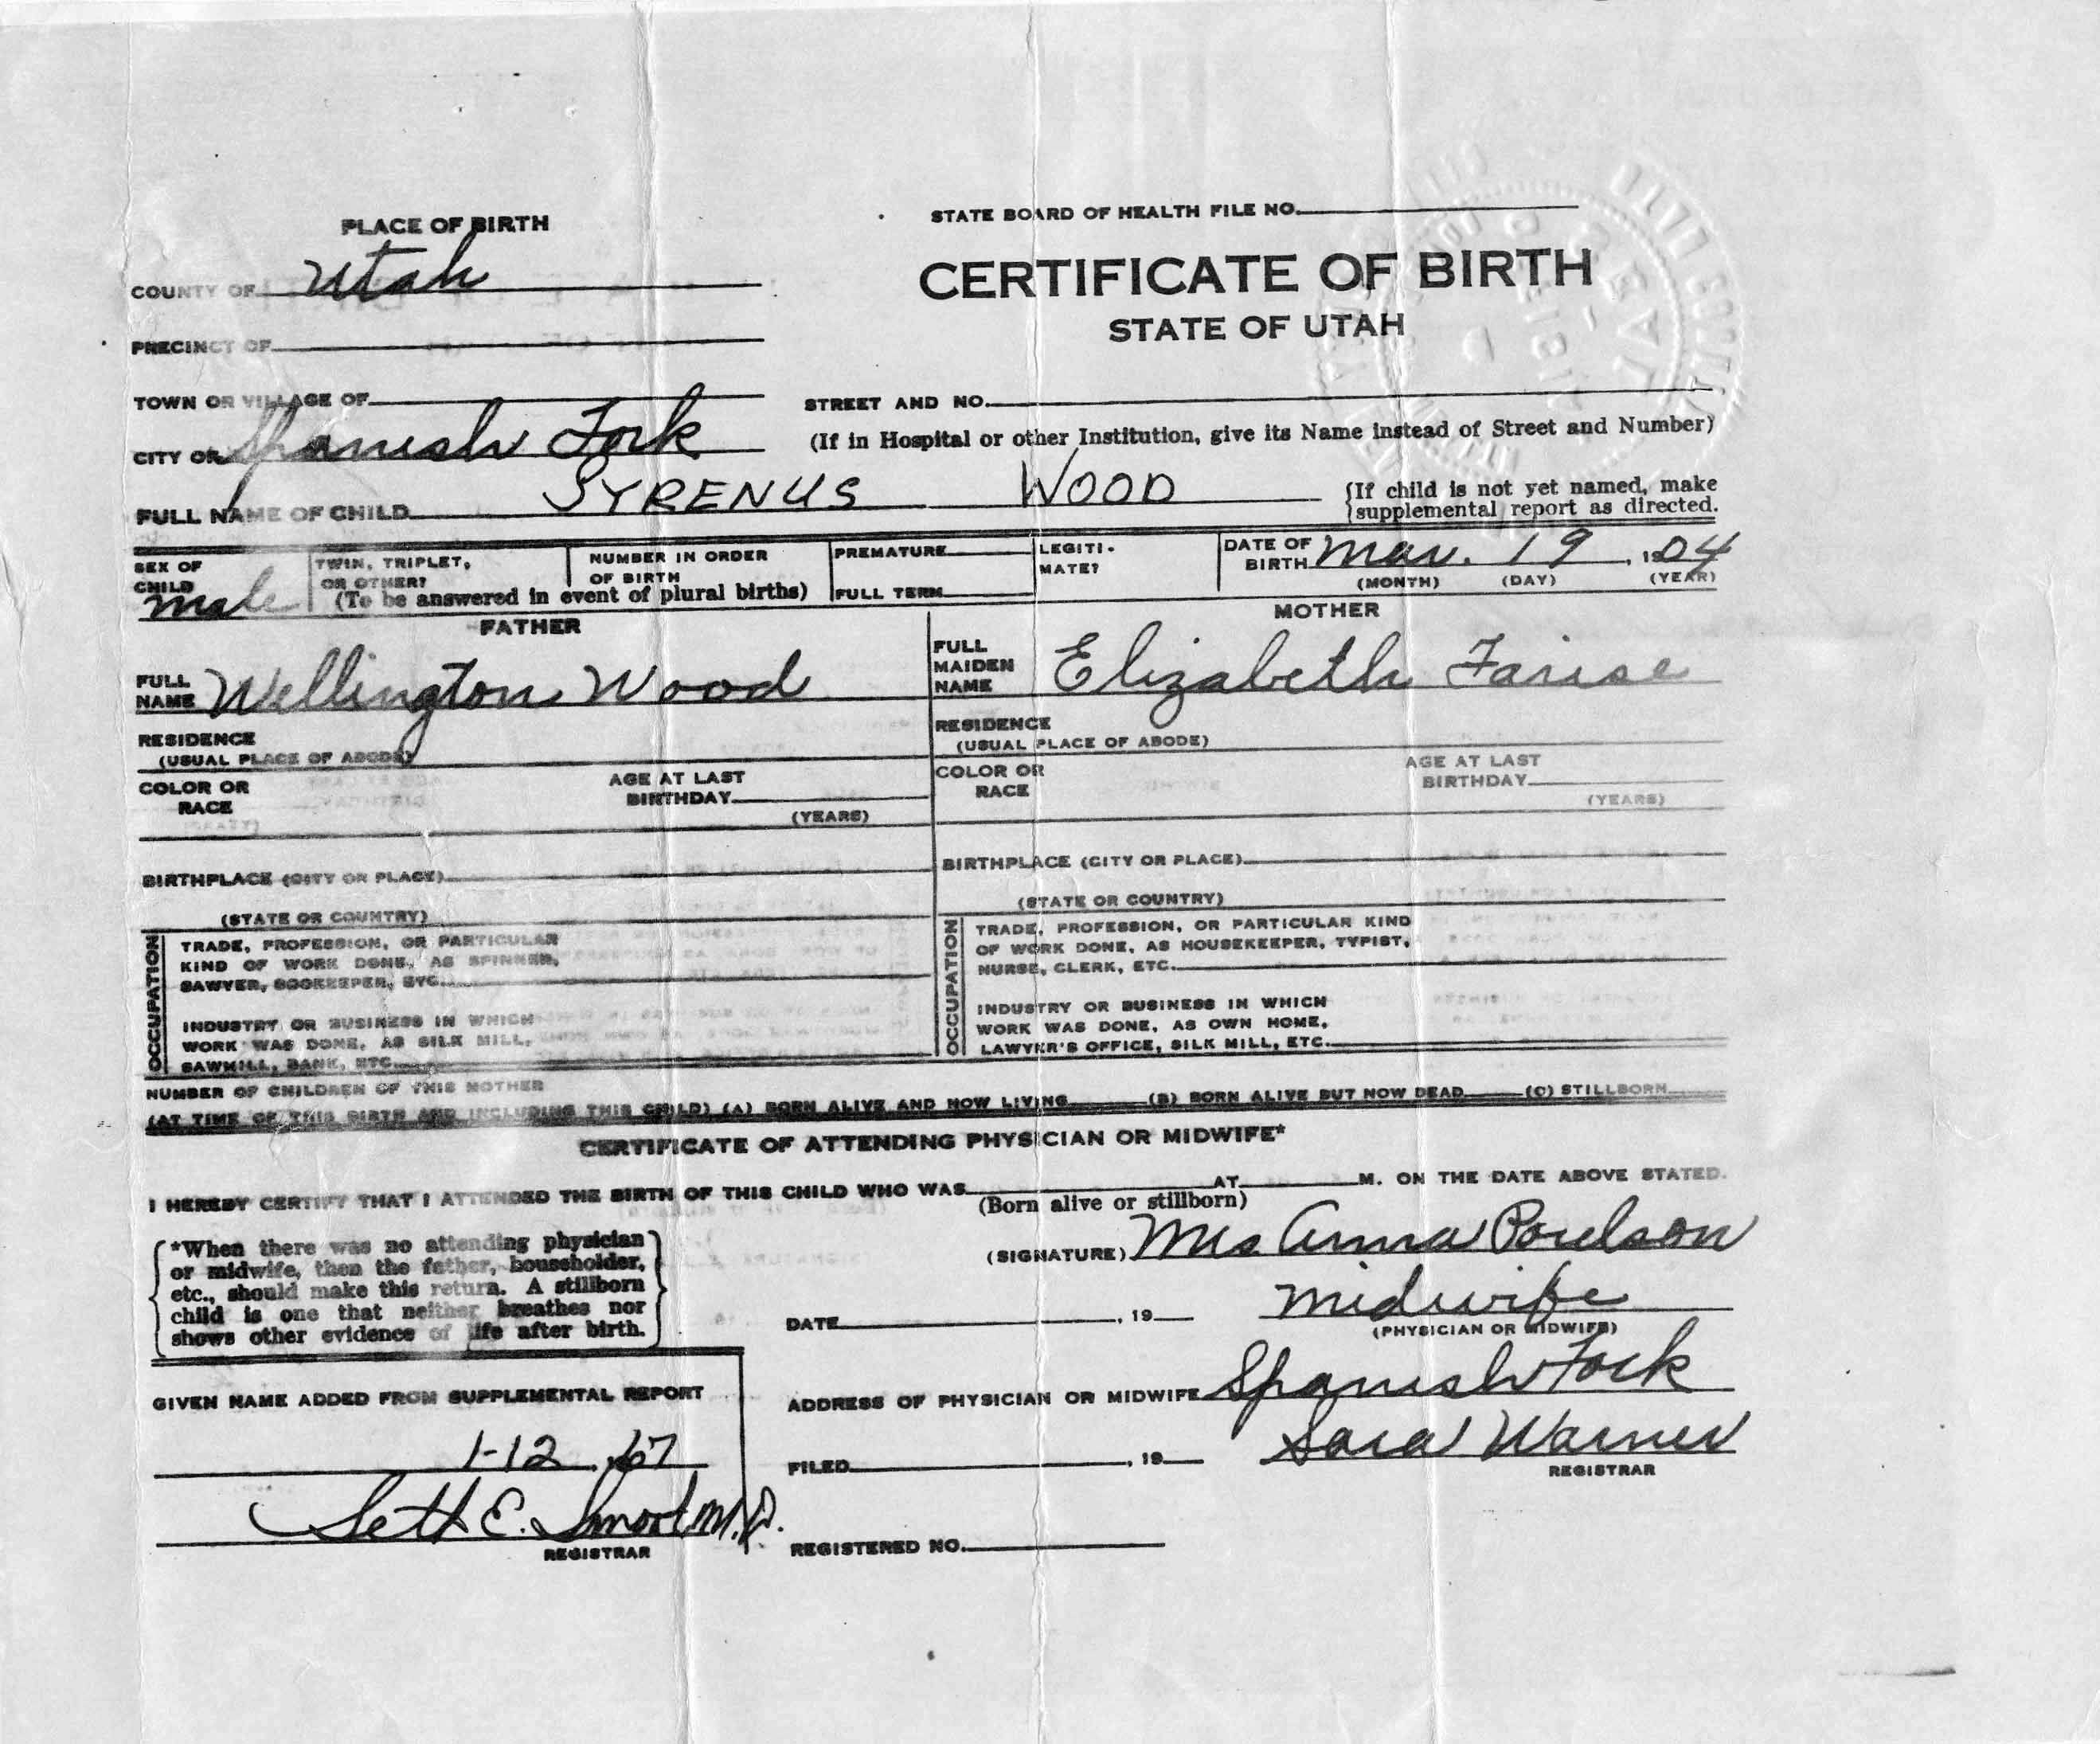 PLACE OF BIRTH
STATE BOARD OF HEALTH FILE NO.
COUNTY OF Utah
CERTIFICATE OF BIRTH
STATE OF UTAH
PRECINCT OF
TOWN OR VILLAGE OF
STREET AND NO.
CITY OF Spanish Fork
(If in Hospital or other Institution, give its Name instead of Street and Number)
FULL NAME OF CHILD SYRENUS WOOD
{If child is not yet named, make
supplemental report as directed.
SEX OF
CHILD
male
TWIN, TRIPLET,
OR OTHER?
NUMBER IN ORDER
OF BIRTH
(To be answered in event of plural births)
PREMATURE
FULL TERM
LEGITI-
MATE?
DATE OF
BIRTH Mar. 19, 1904
(MONTH) (DAY) (YEAR)
FATHER
FULL
NAME Wellington Wood
RESIDENCE
(USUAL PLACE OF ABODE)
COLOR OR
RACE
AGE AT LAST
BIRTHDAY
(YEARS)
BIRTHPLACE (CITY OR PLACE)
(STATE OR COUNTRY)
OCCUPATION
TRADE, PROFESSION, OR PARTICULAR
KIND OF WORK DONE, AS SPINNER,
SAWYER, BOOKKEEPER, ETC.
INDUSTRY OR BUSINESS IN WHICH
WORK WAS DONE, AS SILK MILL,
SAWMILL, BANK, ETC.
MOTHER
FULL
MAIDEN
NAME Elizabeth Farise
RESIDENCE
(USUAL PLACE OF ABODE)
COLOR OR
RACE
AGE AT LAST
BIRTHDAY
(YEARS)
BIRTHPLACE (CITY OR PLACE)
(STATE OR COUNTRY)
OCCUPATION
TRADE, PROFESSION, OR PARTICULAR KIND
OF WORK DONE, AS HOUSEKEEPER, TYPIST,
NURSE, CLERK, ETC.
INDUSTRY OR BUSINESS IN WHICH
WORK WAS DONE, AS OWN HOME,
LAWYER'S OFFICE, SILK MILL, ETC.
NUMBER OF CHILDREN OF THIS MOTHER
(AT TIME OF THIS BIRTH AND INCLUDING THIS CHILD) (A) BORN ALIVE AND NOW LIVING (B) BORN ALIVE BUT NOW DEAD (C) STILLBORN
CERTIFICATE OF ATTENDING PHYSICIAN OR MIDWIFE*
I HEREBY CERTIFY THAT I ATTENDED THE BIRTH OF THIS CHILD WHO WAS AT M. ON THE DATE ABOVE STATED.
(Born alive or stillborn)
*When there was no attending physician
or midwife, then the father, householder,
etc., should make this return. A stillborn
child is one that neither breathes nor
shows other evidence of life after birth.
(SIGNATURE) Mrs Anna Poulson
DATE , 19 Midwife
(PHYSICIAN OR MIDWIFE)
ADDRESS OF PHYSICIAN OR MIDWIFE Spanish Fork
FILED , 19 Sara Warner
REGISTRAR
REGISTERED NO.
GIVEN NAME ADDED FROM SUPPLEMENTAL REPORT
1-12, 67
Seth E. Smoot M.D.
REGISTRAR